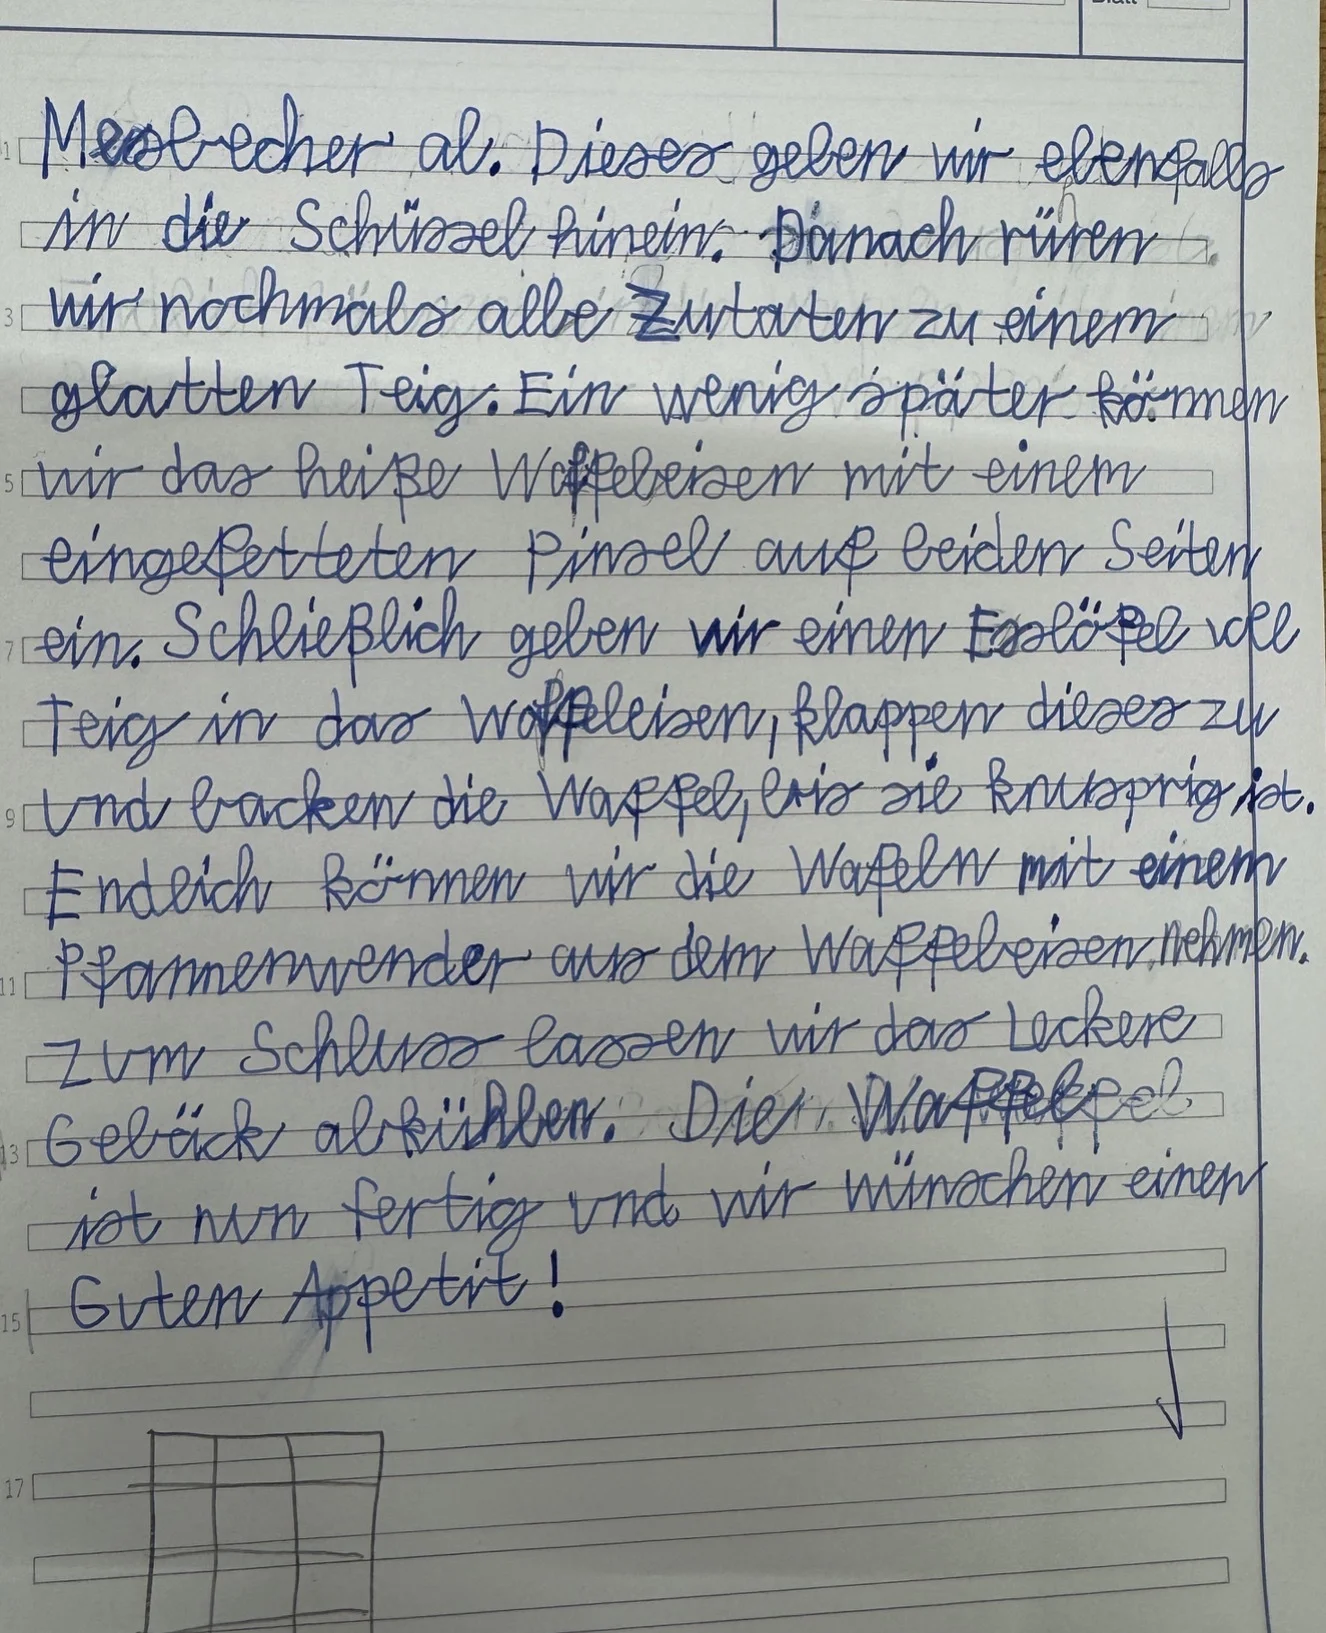 Blatt
1 Messbecher ab. Dieses geben wir ebenfalls
in die Schüssel hinein. Danach rüren
3 wir nochmals alle Zutaten zu einem
glatten Teig. Ein wenig später können
5 wir das heiße Waffeleisen mit einem
eingefetteten Pinsel auf beiden Seiten
7 ein. Schließlich geben wir einen Esslöfel voll
Teig in das Waffeleisen, klappen dieses zu
9 und backen die Waffel, bis sie knusprig ist.
Endlich können wir die Wafeln mit einem
11 Pfannenwender aus dem Waffeleisen nehmen.
Zum Schluss lassen wir das Leckere
13 Gebäck abkühlen. Die Waffel
ist nun fertig und wir wünschen einen
15 Guten Appetit!
17